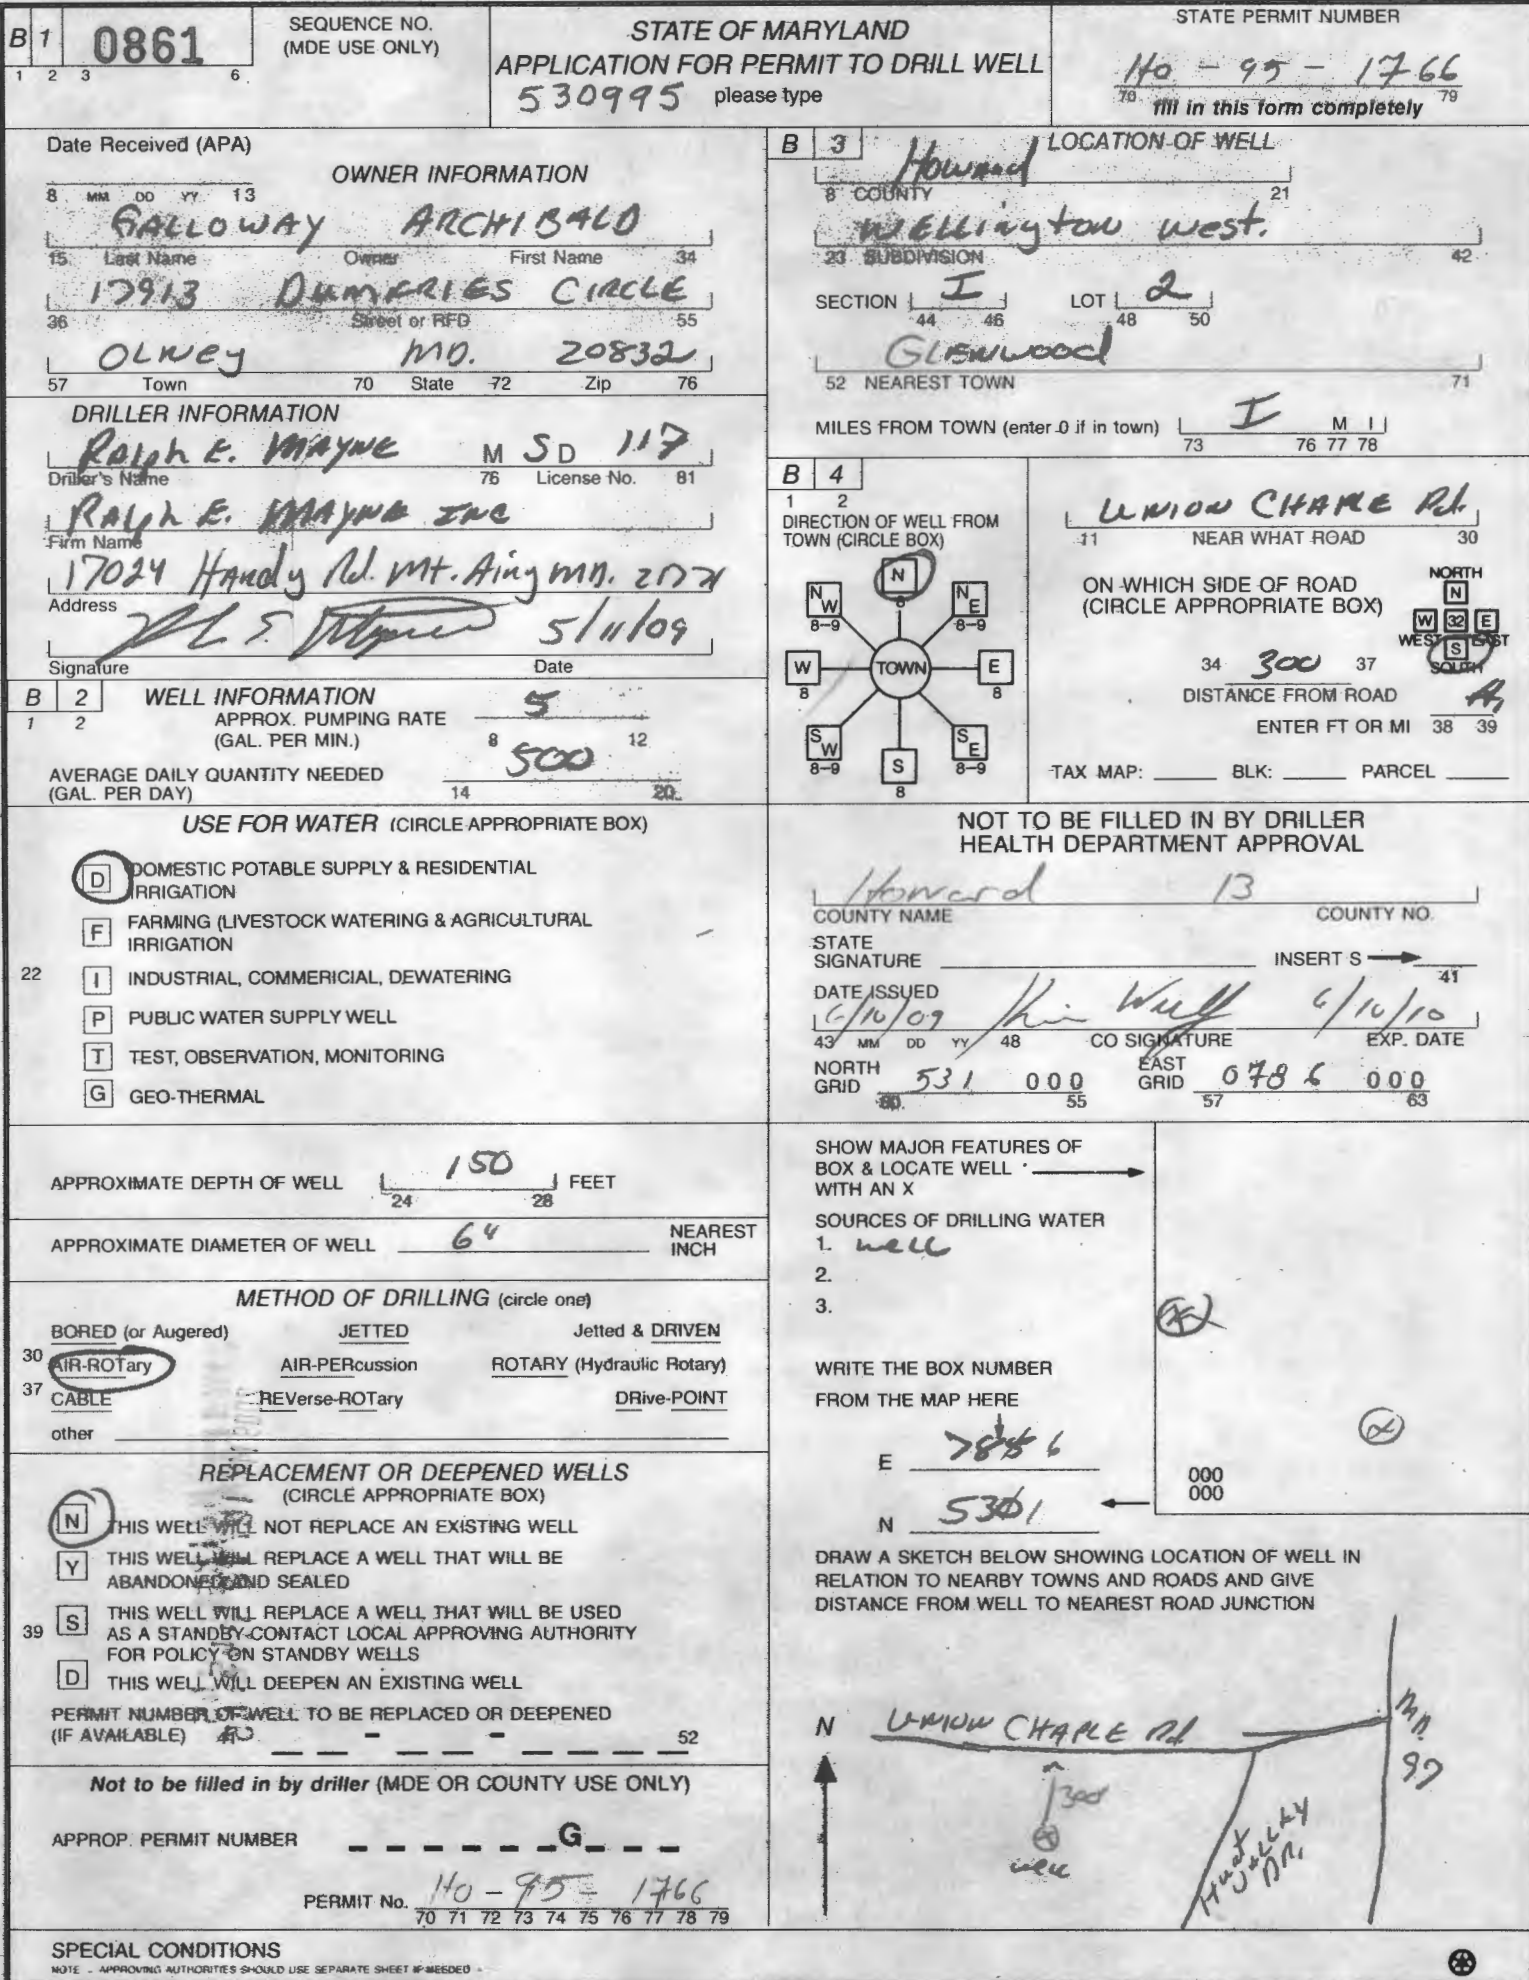 B 1 0861
1 2 3 6
SEQUENCE NO.
(MDE USE ONLY)
STATE OF MARYLAND
APPLICATION FOR PERMIT TO DRILL WELL
530995 please type
STATE PERMIT NUMBER
HO - 95 - 1766
70 fill in this form completely 79
Date Received (APA)
8 MM DD YY 13
OWNER INFORMATION
GALLOWAY ARCHIBALD
15 Last Name Owner First Name 34
17913 DUMFRIES CIRCLE
36 Street or RFD 55
OLNEY MD. 20832
57 Town 70 State 72 Zip 76
DRILLER INFORMATION
Ralph E. MAYNE M S D 117
Driller's Name 76 License No. 81
RALph E. MAYNE INC
Firm Name
17024 Hardy Rd. Mt. Airy MD. 21771
Address
5/11/09
Signature Date
B 2 WELL INFORMATION
1 2
APPROX. PUMPING RATE 5
(GAL. PER MIN.) 8 12
AVERAGE DAILY QUANTITY NEEDED 500
(GAL. PER DAY) 14 20
USE FOR WATER (CIRCLE APPROPRIATE BOX)
D DOMESTIC POTABLE SUPPLY & RESIDENTIAL
IRRIGATION
F FARMING (LIVESTOCK WATERING & AGRICULTURAL
IRRIGATION
22 I INDUSTRIAL, COMMERICIAL, DEWATERING
P PUBLIC WATER SUPPLY WELL
T TEST, OBSERVATION, MONITORING
G GEO-THERMAL
APPROXIMATE DEPTH OF WELL 150 FEET
24 28
APPROXIMATE DIAMETER OF WELL 6" NEAREST
INCH
METHOD OF DRILLING (circle one)
BORED (or Augered) JETTED Jetted & DRIVEN
30 AIR-ROTary AIR-PERcussion ROTARY (Hydraulic Rotary)
37 CABLE REVerse-ROTary DRive-POINT
other
REPLACEMENT OR DEEPENED WELLS
(CIRCLE APPROPRIATE BOX)
N THIS WELL WILL NOT REPLACE AN EXISTING WELL
Y THIS WELL WILL REPLACE A WELL THAT WILL BE
ABANDONED AND SEALED
39 S THIS WELL WILL REPLACE A WELL THAT WILL BE USED
AS A STANDBY-CONTACT LOCAL APPROVING AUTHORITY
FOR POLICY ON STANDBY WELLS
D THIS WELL WILL DEEPEN AN EXISTING WELL
PERMIT NUMBER OF WELL TO BE REPLACED OR DEEPENED
(IF AVAILABLE) - - 52
Not to be filled in by driller (MDE OR COUNTY USE ONLY)
APPROP. PERMIT NUMBER G
PERMIT No. HO - 95 - 1766
70 71 72 73 74 75 76 77 78 79
SPECIAL CONDITIONS
NOTE - APPROVING AUTHORITIES SHOULD USE SEPARATE SHEET IF NEEDED -
B 3 LOCATION OF WELL
Howard
8 COUNTY 21
WELLington west.
23 SUBDIVISION 42
SECTION I LOT 2
44 46 48 50
GLENWOOD
52 NEAREST TOWN 71
MILES FROM TOWN (enter 0 if in town) I M I
73 76 77 78
B 4
1 2
DIRECTION OF WELL FROM
TOWN (CIRCLE BOX)
N
8
NW NE
8-9 8-9
W TOWN E
8 8
SW SE
8-9 8-9
S
8
UNION CHAPLE Rd.
11 NEAR WHAT ROAD 30
ON WHICH SIDE OF ROAD
(CIRCLE APPROPRIATE BOX)
NORTH
N
W 32 E
WEST EAST
S
SOUTH
34 300 37
DISTANCE FROM ROAD
ENTER FT OR MI ft,
38 39
TAX MAP: BLK: PARCEL
NOT TO BE FILLED IN BY DRILLER
HEALTH DEPARTMENT APPROVAL
Howard 13
COUNTY NAME COUNTY NO.
STATE
SIGNATURE INSERT S
41
DATE ISSUED
6/10/09 6/10/10
43 MM DD YY 48 CO SIGNATURE EXP. DATE
NORTH
GRID 531 000
50 55
EAST
GRID 0786 000
57 63
SHOW MAJOR FEATURES OF
BOX & LOCATE WELL
WITH AN X
SOURCES OF DRILLING WATER
1. well
2.
3.
WRITE THE BOX NUMBER
FROM THE MAP HERE
E
N
000
000
DRAW A SKETCH BELOW SHOWING LOCATION OF WELL IN
RELATION TO NEARBY TOWNS AND ROADS AND GIVE
DISTANCE FROM WELL TO NEAREST ROAD JUNCTION
N UNION CHAPLE Rd
MD.
97
300
well
Hunt
VALLEY
DR.